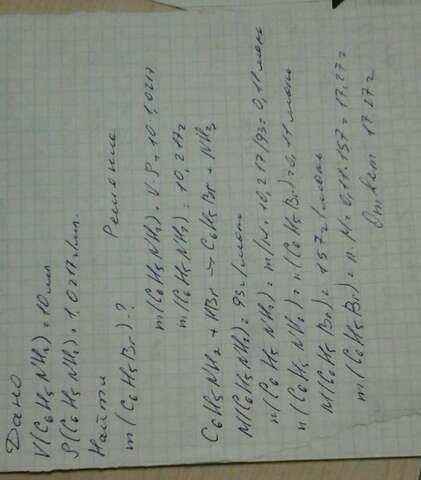 Дано
V(C6H5NH2) = 10 мл
ρ(C6H5NH2) = 1,0217 г/мл.
Найти
m(C6H5Br) - ?
Решение
m(C6H5NH2) = V·ρ = 10·1,0217
m(C6H5NH2) = 10,217 г
C6H5NH2 + HBr → C6H5Br + NH3
M(C6H5NH2) = 93 г/моль
n(C6H5NH2) = m/M = 10,217/93 = 0,11 моль
n(C6H5NH2) = n(C6H5Br) = 0,11 моль
M(C6H5Br) = 157 г/моль
m(C6H5Br) = n·M = 0,11·157 = 17,27 г
Ответ 17.27 г